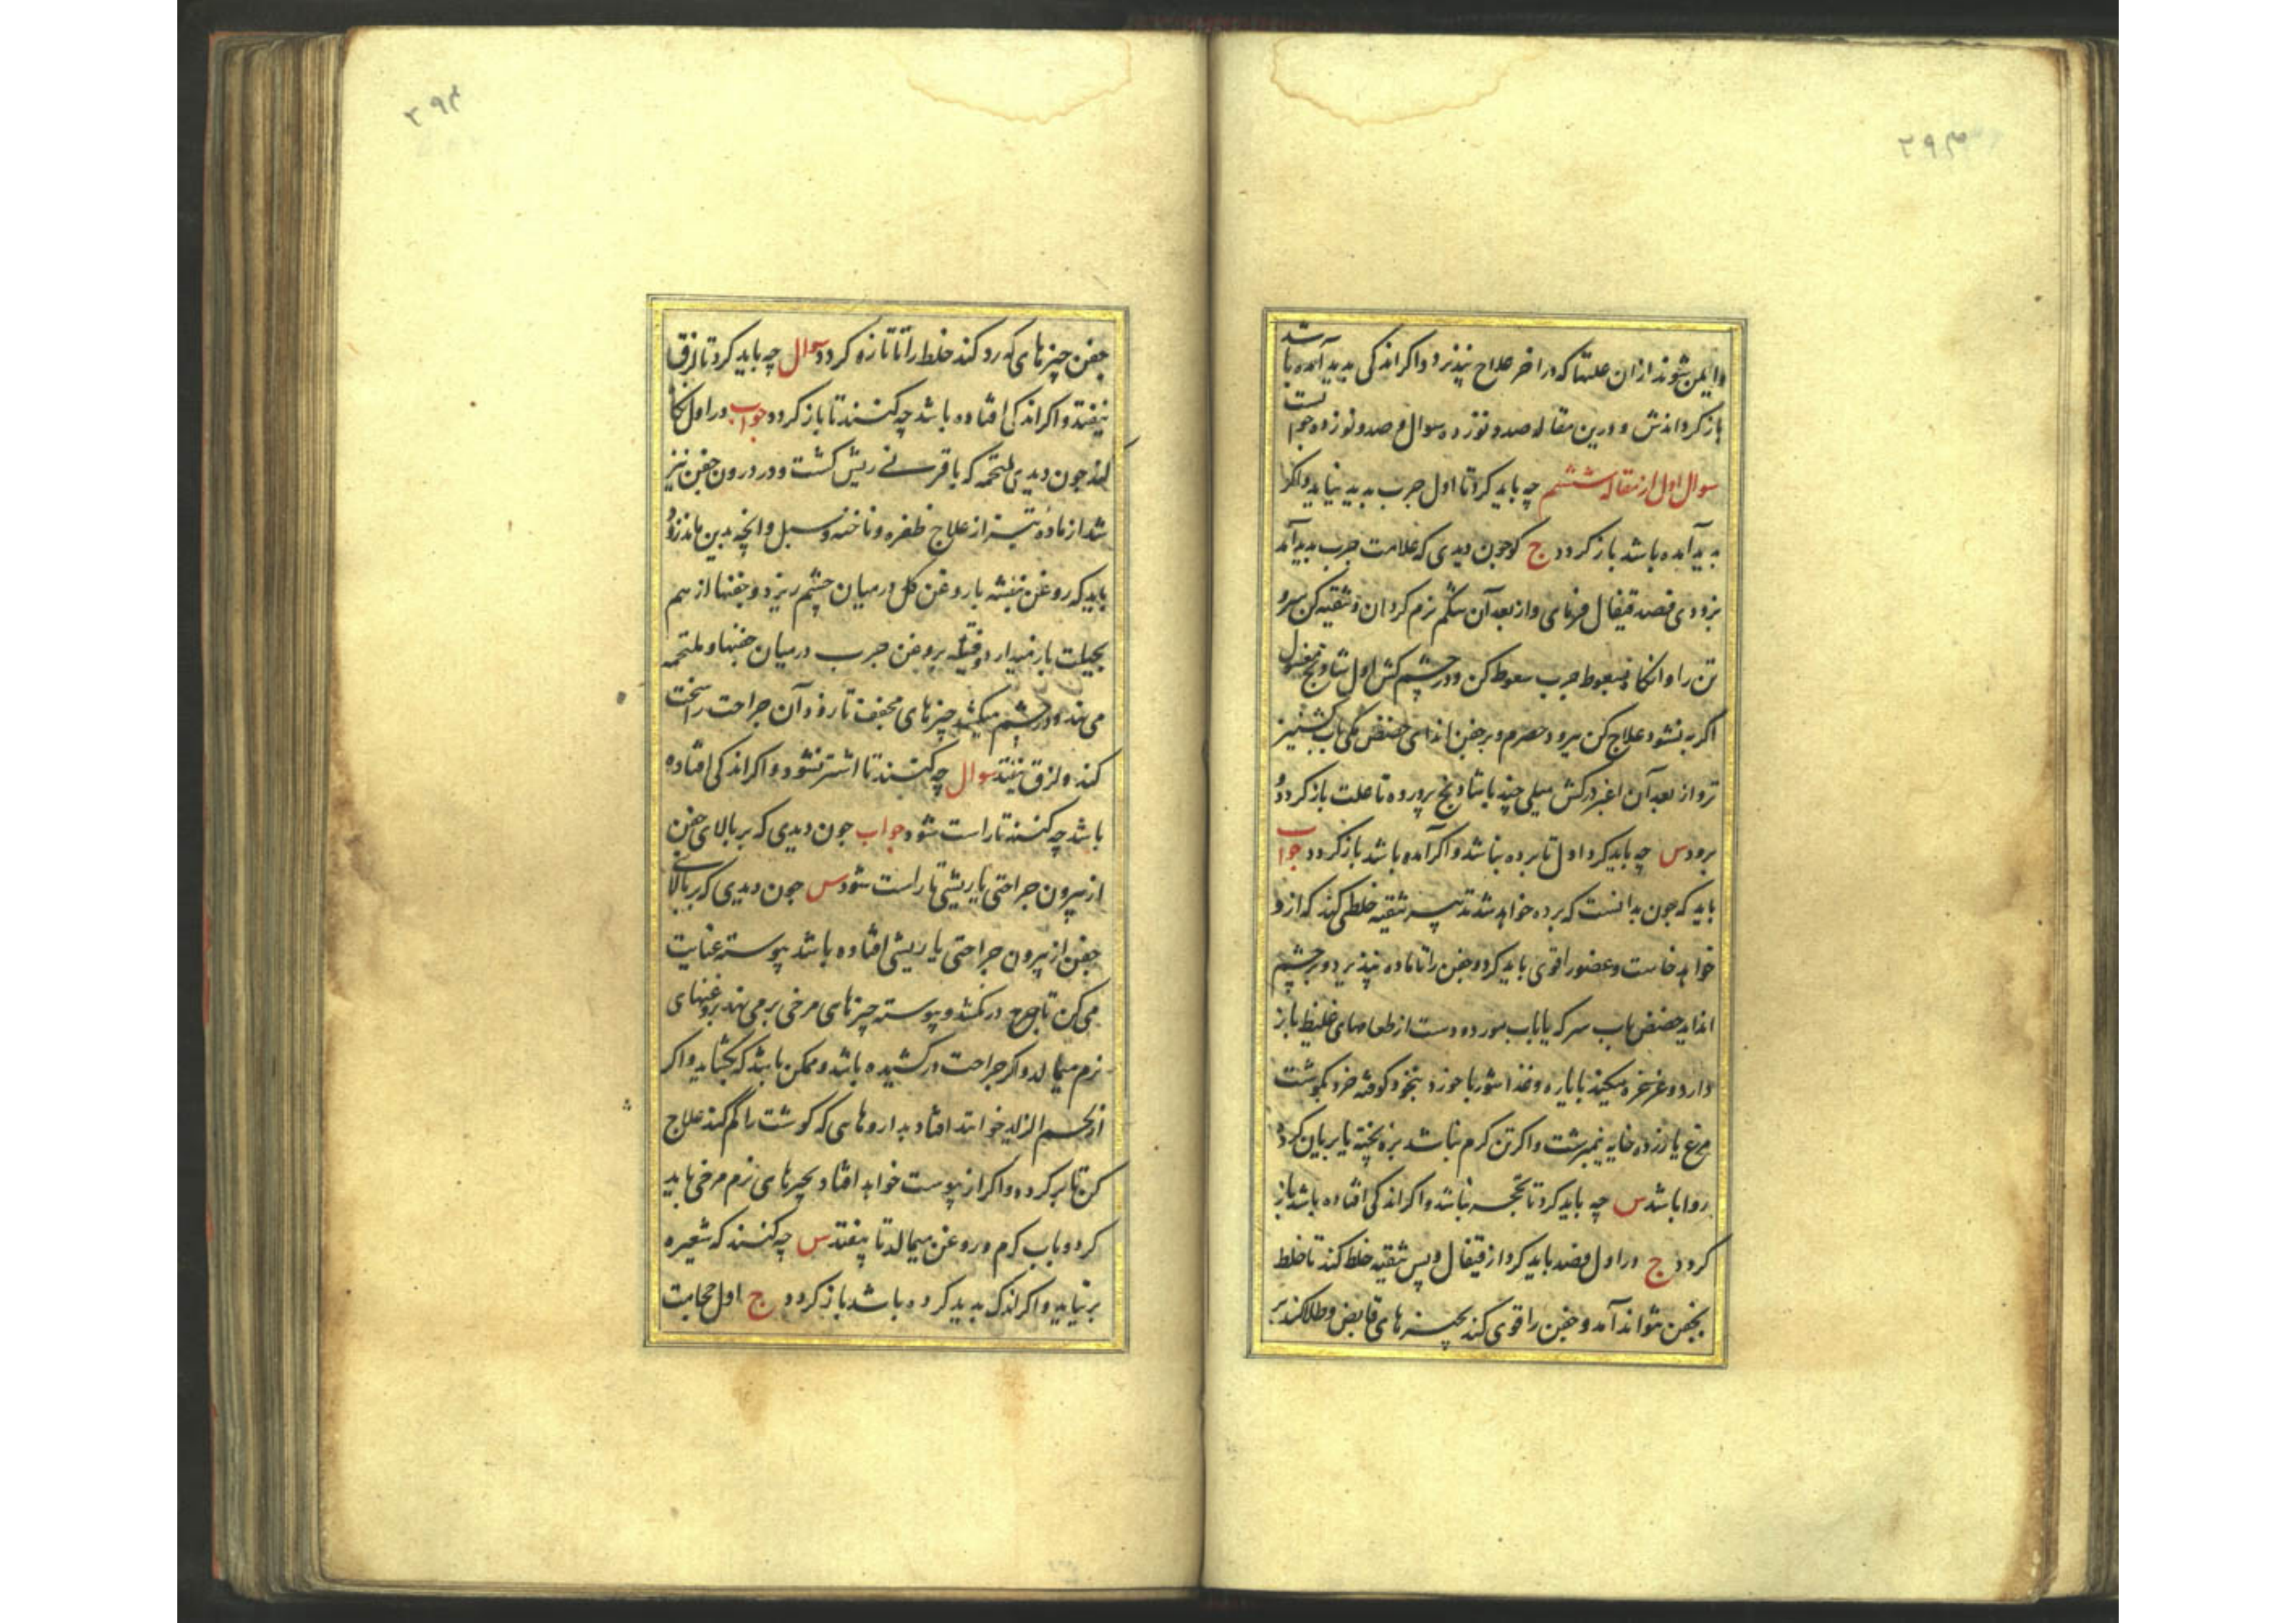 ۲۹۳
وایمن شوند از ان علتها که در اخر علاج نپذیرد و اکر اندکی بدید آمده باشد
باز کرداندش و درین مقاله صد و نوزده سوال و صد و نوزده جوابست
سوال اول از مقاله ششم چه باید کرد تا اول جرب بدید نیاید و اکر
بدید آمده باشد باز کردد ج کو جون دیدی که علامت جرب بدید آمد
بزودی فصد قیفال فرمای و از بعد آن شکم نرم کردان و تنقیه کن سر و
تن را و انکاه بسعوط جرب سعوط کن و در چشم کش اول شاونج مغسول
اکر به نشود علاج کن ببرود حصرم و بر جفن اندای حضض مکی باب کشنیز
تر و از بعد آن اغبر درکش میلی چند با شاونج پرورده تا علت باز کردد و
برود س چه باید کرد اول تا برده نباشد و اکر آمده باشد باز کردد جواب
باید که جون بدانست که برده خواهد شد تدبیر تنقیه خلطی کند که از و
خواهد خاست و عضو را قوی باید کرد و جفن را تا ماده نپذیرد و بر چشم
انداید حضض باب سرکه یا باب مورد و دست از طعامهای غلیظ باز
دارد و غرغره میکند بایاره و غذا شوربا خورد بنخود کوفته خرد بکوشت
مرغ یا زرده خایه نیمبرشت و اکر تن کرم نباشد بزه پخته یا بریان کرده
روا باشد س چه باید کرد تا تحجر نباشد و اکر اندکی افتاده باشد باز
کردد ج در اول فصد باید کرد از قیفال و پس تنقیه خلط کند تا خلط
بجفن نتواند آمد و جفن را قوی کند بچیزهای قابض و طلا کند بر
۲۹۴
جفن چیزهای که رد کند خلط را تا تازه کردد سوال چه باید کرد تا لزق
نیفتد و اکر اندکی افتاده باشد چه کنند تا باز کردد جواب در اول نکاه
کند جون دیدی ملتحمه که با قرنی ریش کشت و در درون جفن نیز
شد از ماده تیز از علاج ظفره و ناخنه و سبل و انچه بدین ماند زود
باید که روغن بنفشه با روغن کل در میان چشم ریزد و جفنها از هم
بحیلت باز میدارد و فتیله بروغن جرب در میان جفنها و ملتحمه
می نهد و در چشم میکشد چیزهای مجفف تا زود آن جراحت را سخت
کند و لزق نیفتد سوال چه کنند تا اشتر نشود و اکر اندکی افتاده
باشد چه کنند تا راست شود جواب جون دیدی که بر بالای جفن
از بیرون جراحتی یا ریشی تا راست شود س جون دیدی که بر بالای
جفن از بیرون جراحتی یا ریشی افتاده باشد پیوسته عنایت
می کن تا درنکشد و پیوسته چیزهای مرخی بر می نهد بروغنهای
نرم میمالد و اکر جراحت درکشیده باشد و ممکن باشد که بکشاید و اکر
از لحم الزاید خواهد افتاد بداروهای که کوشت را کم کند علاج
کن تا بر کردد و اکر از پوست خواهد افتاد بچیزهای نرم مرخی باید
کرد و باب کرم و روغن میمالد تا بیفتد س چه کنند که شعیره
بر نیاید و اکر اندک بدید کرده باشد باز کردد ج اول حجامت